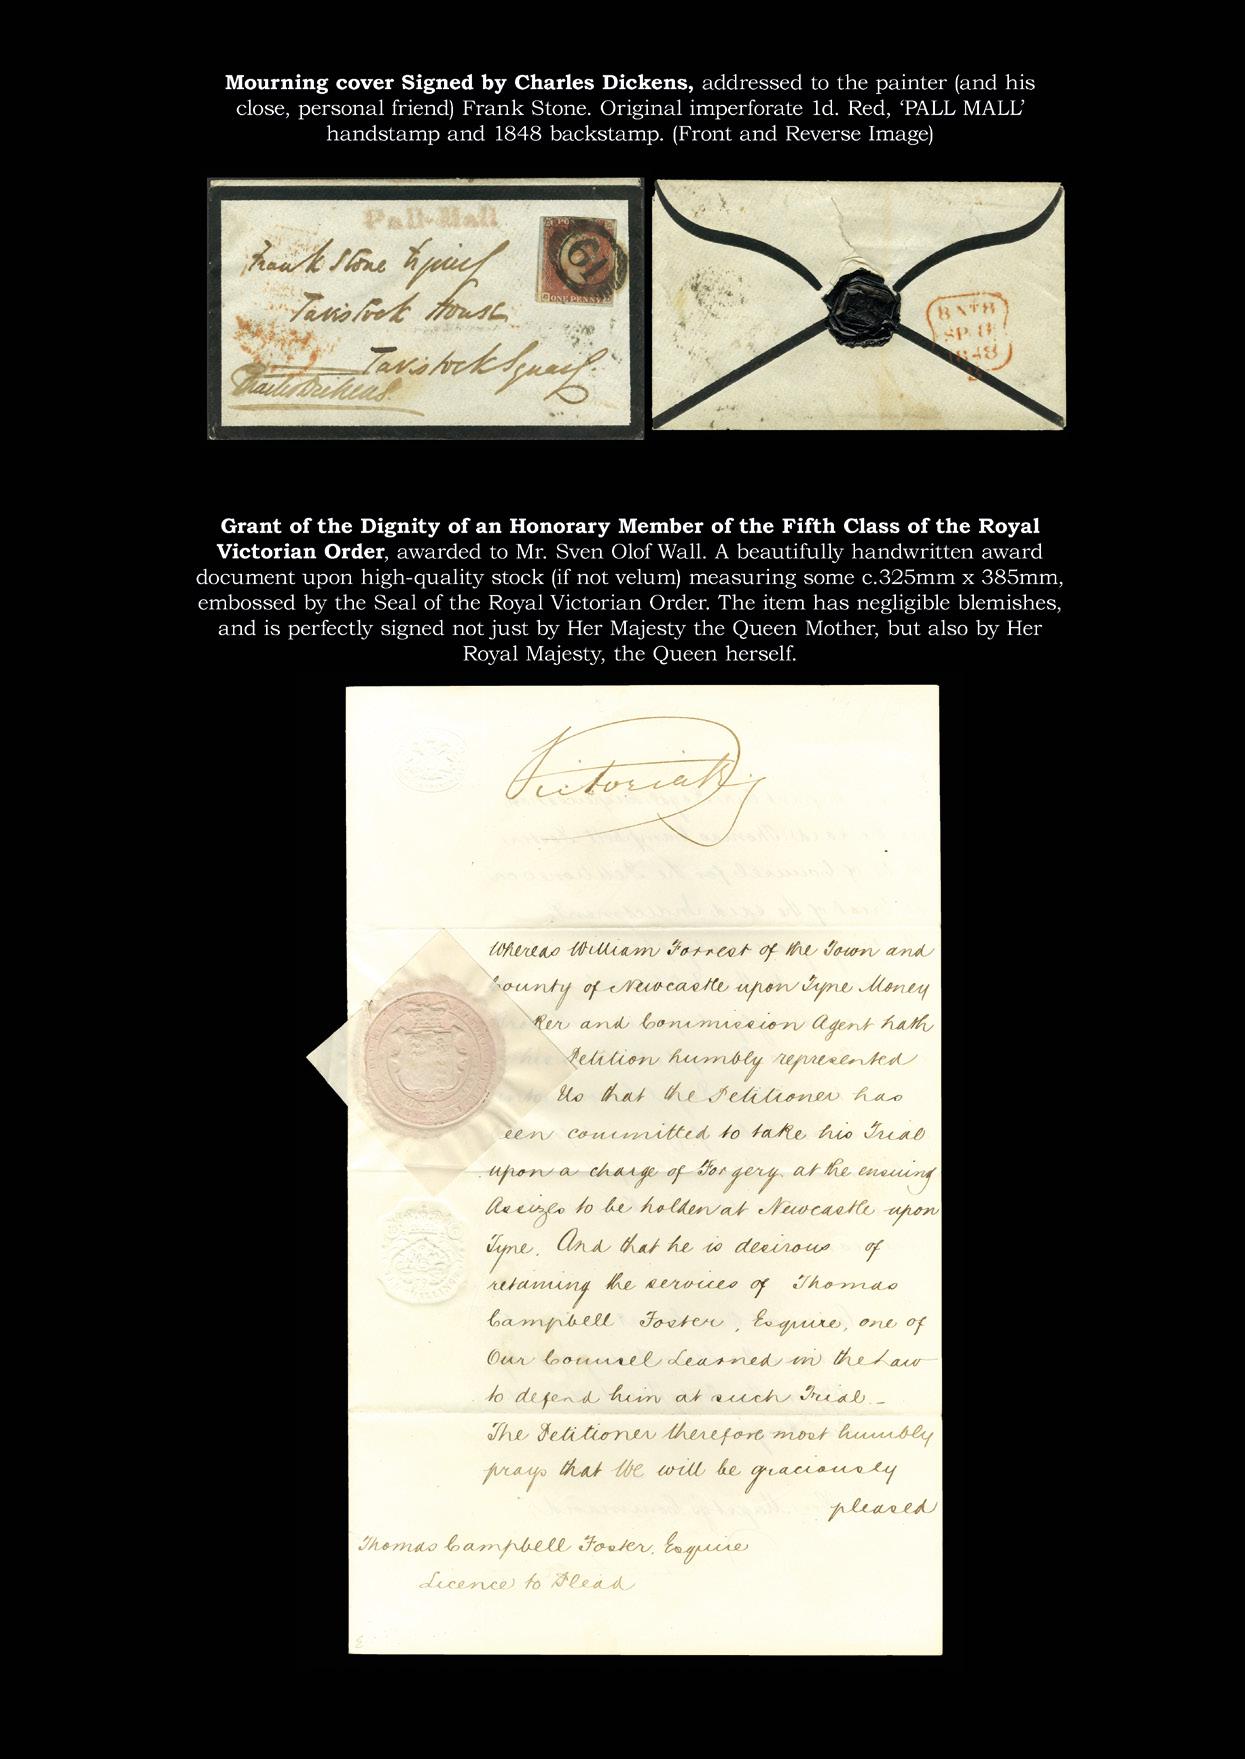 Mourning cover Signed by Charles Dickens, addressed to the painter (and his
close, personal friend) Frank Stone. Original imperforate 1d. Red, ‘PALL MALL’
handstamp and 1848 backstamp. (Front and Reverse Image)
Pall-Mall
Frank Stone Esquire
Tavistock House
Tavistock Square.
Charles Dickens.
19
ONE PENNY
8 NT 8
SP. 8
1848
Grant of the Dignity of an Honorary Member of the Fifth Class of the Royal
Victorian Order, awarded to Mr. Sven Olof Wall. A beautifully handwritten award
document upon high-quality stock (if not velum) measuring some c.325mm x 385mm,
embossed by the Seal of the Royal Victorian Order. The item has negligible blemishes,
and is perfectly signed not just by Her Majesty the Queen Mother, but also by Her
Royal Majesty, the Queen herself.
Victoria R
Whereas William Forrest of the Town and
County of Newcastle upon Tyne Money
ker and Commission Agent hath
his Petition humbly represented
unto Us that the Petitioner has
een committed to take his Trial
upon a charge of Forgery at the ensuing
Assizes to be holden at Newcastle upon
Tyne. And that he is desirous of
retaining the services of Thomas
Campbell Foster, Esquire, one of
Our Counsel Learned in the Law
to defend him at such Trial. –
The Petitioner therefore most humbly
prays that We will be graciously
pleased
Thomas Campbell Foster, Esquire
Licence to Plead